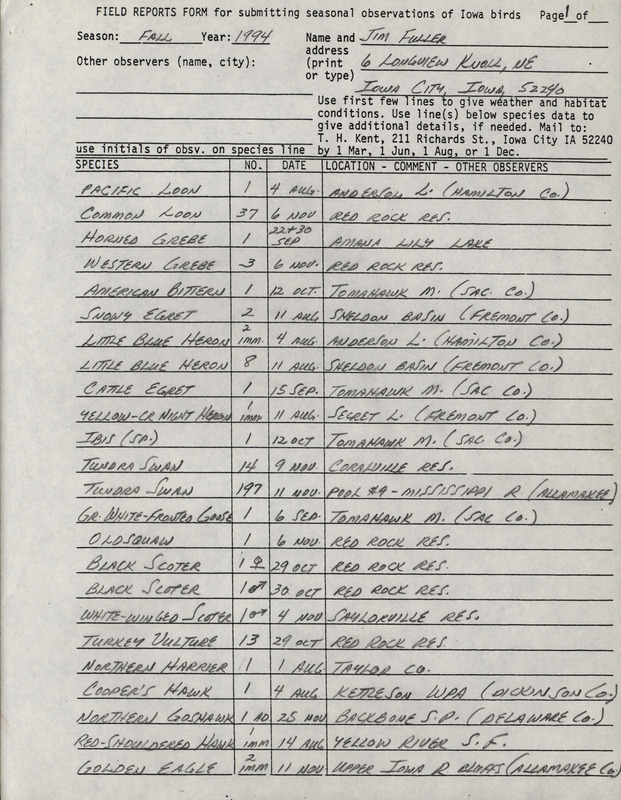 FIELD REPORTS FORM for submitting seasonal observations of Iowa birds Page 1 of
Season: FALL Year: 1994 Name and JIM FULLER
address 6 LONGVIEW KNOLL, NE
Other observers (name, city): (print
or type) IOWA CITY, IOWA, 52240
Use first few lines to give weather and habitat
conditions. Use line(s) below species data to
give additional details, if needed. Mail to:
T. H. Kent, 211 Richards St., Iowa City IA 52240
use initials of obsv. on species line by 1 Mar, 1 Jun, 1 Aug, or 1 Dec.
SPECIES NO. DATE LOCATION - COMMENT - OTHER OBSERVERS
PACIFIC LOON 1 4 AUG. ANDERSON L. (HAMILTON CO.)
COMMON LOON 37 6 NOV RED ROCK RES.
HORNED GREBE 1 22+30 SEP AMANA LILY LAKE
WESTERN GREBE 3 6 NOV. RED ROCK RES.
AMERICAN BITTERN 1 12 OCT. TOMAHAWK M. (SAC CO.)
SNOWY EGRET 2 11 AUG SHELDON BASIN (FREMONT CO.)
LITTLE BLUE HERON 2 imm. 4 AUG. ANDERSON L. (HAMILTON CO.)
LITTLE BLUE HERON 8 11 AUG. SHELDON BASIN (FREMONT CO.)
CATTLE EGRET 1 15 SEP. TOMAHAWK M. (SAC CO.)
YELLOW-CR NIGHT HERON 1 imm 11 AUG. SECRET L. (FREMONT CO.)
IBIS (SP.) 1 12 OCT TOMAHAWK M. (SAC CO.)
TUNDRA SWAN 14 9 NOV. CORALVILLE RES.
TUNDRA SWAN 197 11 NOV. POOL #9 - MISSISSIPPI R (ALLAMAKEE)
GR. WHITE-FRONTED GOOSE 1 6 SEP. TOMAHAWK M. (SAC CO.)
OLDSQUAW 1 6 NOV RED ROCK RES.
BLACK SCOTER 1 ♀ 29 OCT RED ROCK RES.
BLACK SCOTER 1 ♂ 30 OCT RED ROCK RES.
WHITE-WINGED SCOTER 1 ♂ 4 NOV SAYLORVILLE RES.
TURKEY VULTURE 13 29 OCT RED ROCK RES.
NORTHERN HARRIER 1 1 AUG. TAYLOR CO.
COOPER'S HAWK 1 4 AUG KETTLESON WPA (DICKINSON CO.)
NORTHERN GOSHAWK 1 AD 25 NOV BACKBONE S.P. (DELAWARE CO.)
RED-SHOULDERED HAWK 1 imm 14 AUG YELLOW RIVER S.F.
GOLDEN EAGLE 2 imm 11 NOV. UPPER IOWA R BLUFFS (ALLAMAKEE CO)